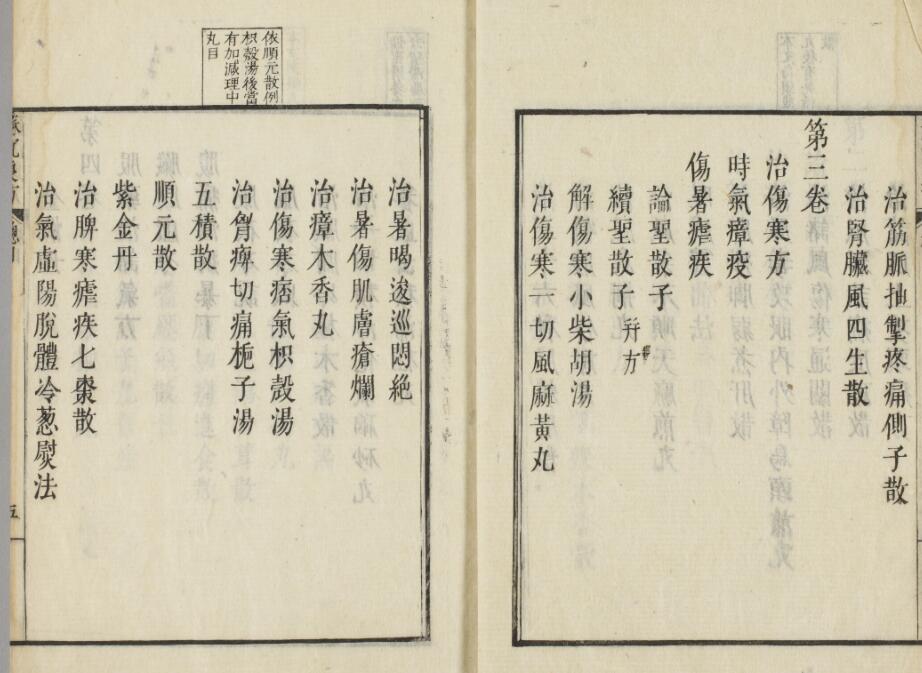 治筋脈抽掣疼痛側子散
治腎臟風四生散
第三卷
治傷寒方
時氣瘴疫
傷暑瘧疾
論聖散子
續聖散子并方
解傷寒小柴胡湯
治傷寒一切風麻黃丸
治暑暍逡巡悶絶
治暑傷肌膚瘡爛
治瘴木香丸
治傷寒痞氣枳殼湯
治胷痺切痛梔子湯
五積散
順元散
紫金丹
治脾寒瘧疾七棗散
治氣虛陽脫體冷葱熨法
依順元散例
枳殼湯後當
有加減理中
丸目
五